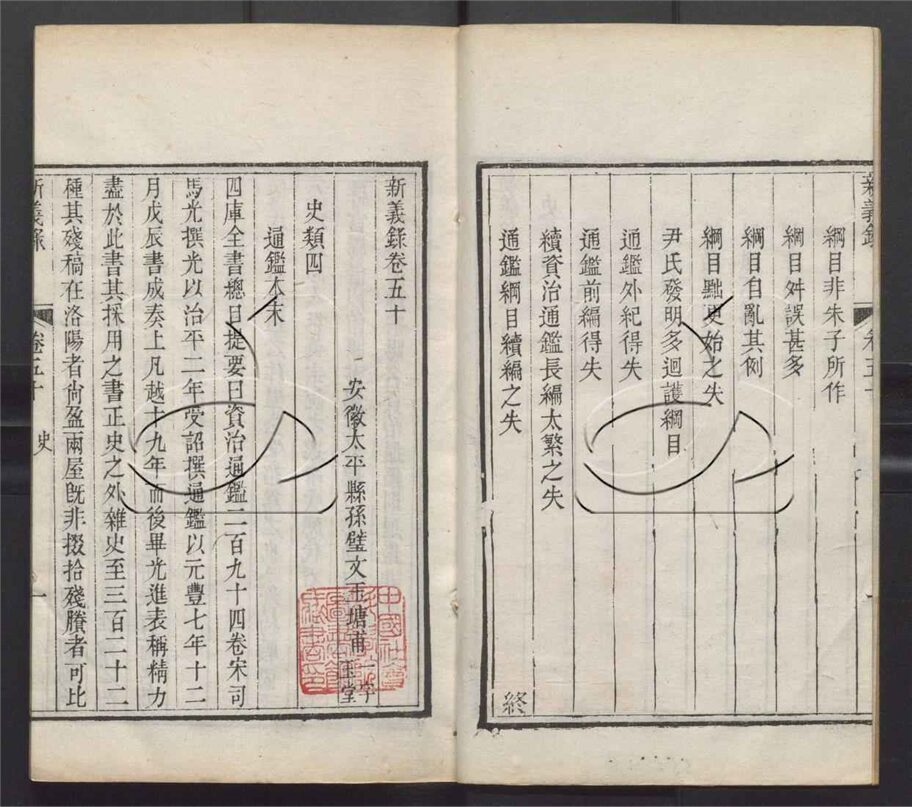 新義錄
卷五十
綱目非朱子所作
綱目舛誤甚多
綱目自亂其例
綱目黜更始之失
尹氏發明多迴護綱目
通鑑外紀得失
通鑑前編得失
續資治通鑑長編太繁之失
通鑑綱目續編之失
終
新義錄卷五十
安徽太平縣孫璧文玉塘甫一字玉堂
史類四
通鑑本末
四庫全書總目提要曰資治通鑑二百九十四卷宋司
馬光撰光以治平二年受詔撰通鑑以元豐七年十二
月戊辰書成奏上凡越十九年而後畢光進表稱精力
盡於此書其採用之書正史之外雜史至三百二十二
種其殘稿在洛陽者尙盈兩屋旣非掇拾殘賸者可比
新義錄
卷五十
史
一